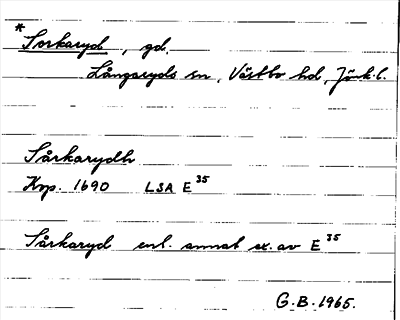 * Sorkaryd, gd.
Långaryds sn, Västbo hd, Jönk. l.
Sårkarydh
Knp. 1690 LSA E 35
Sårkaryd enl. annat ex. av E 35
G.B. 1965.